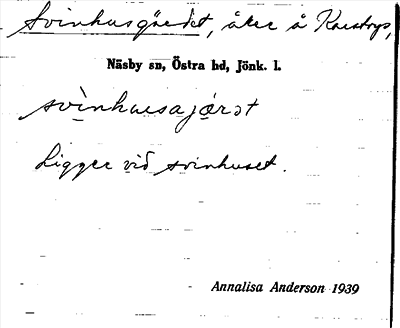 Svinhusgärdet, åker å Knastorps,
Näsby sn, Östra hd, Jönk. l.
svìnhu̲sajá̲rət
Ligger vid svinhuset.
Annalisa Anderson 1939